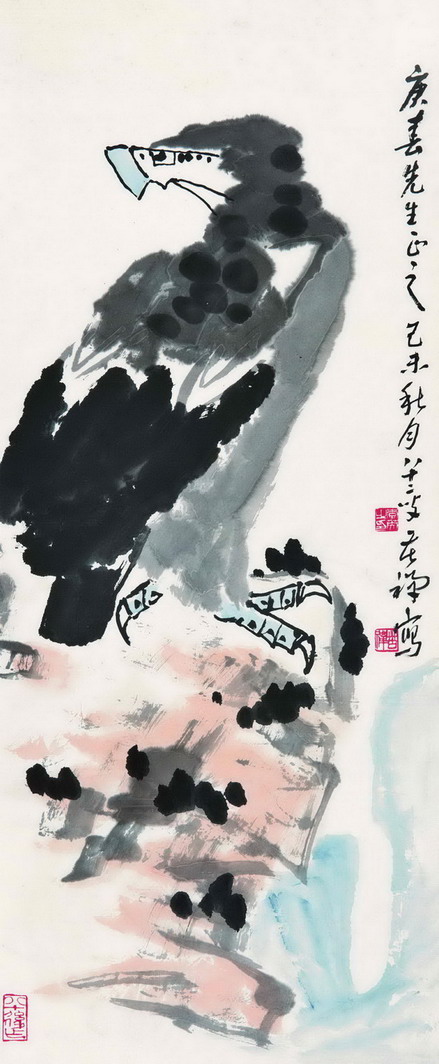 庚春先生正之己未秋月八十二叟苦禅写